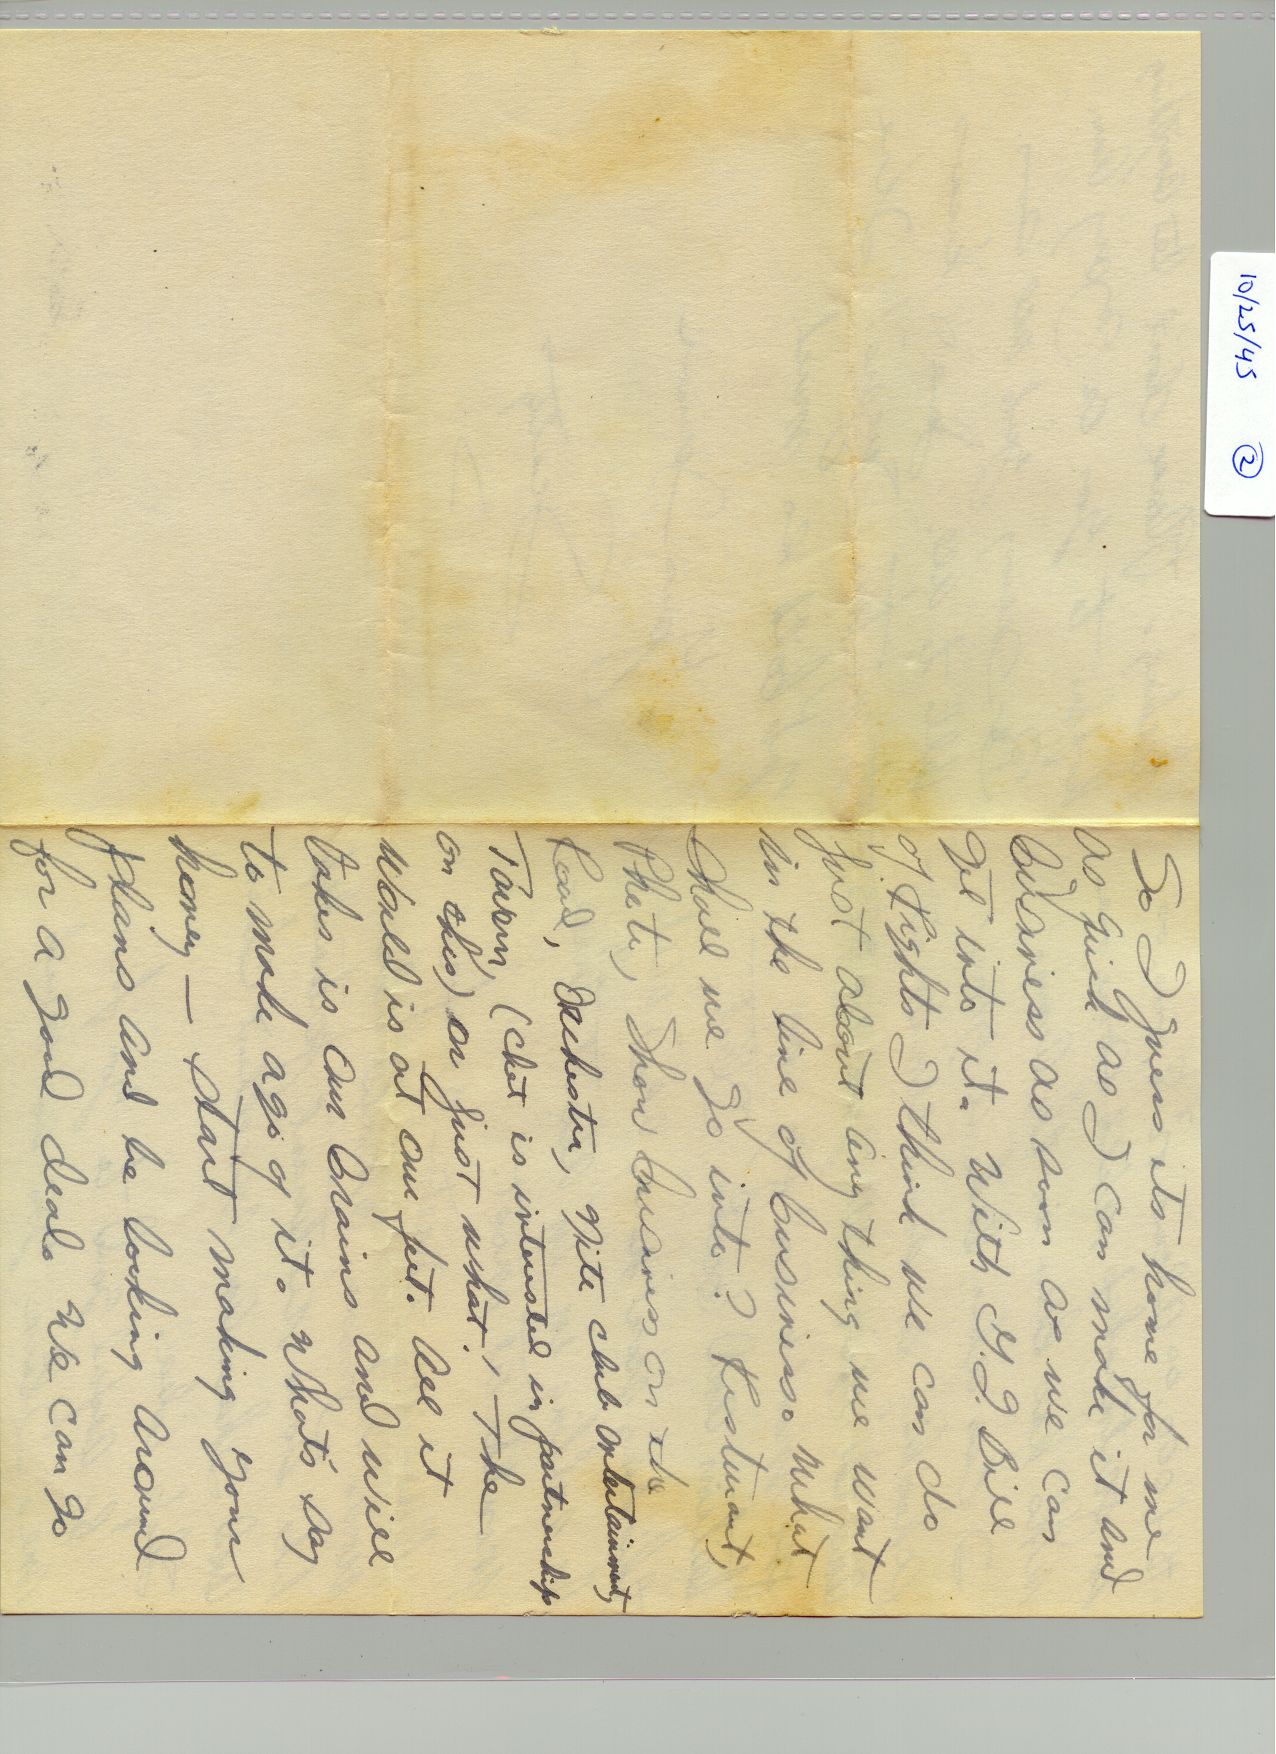 10/25/45 ②
So I guess its home for me
as quick as I can make it and
business as soon as we can
get into it. With G.I. Bill
of Rights I think we can do
just about any thing we want
in the line of business. What
shall we go into? Resturant,
Photo, Show business on the
Road, Orchestra, Nite club entertainment,
Tavern, (Chet is interested in partnership
on this) or just what! The
World is at our feet. All it
takes is our brains and will
to make a go of it. What's say
honey — start making your
plans and be looking around
for a good deal. We can go